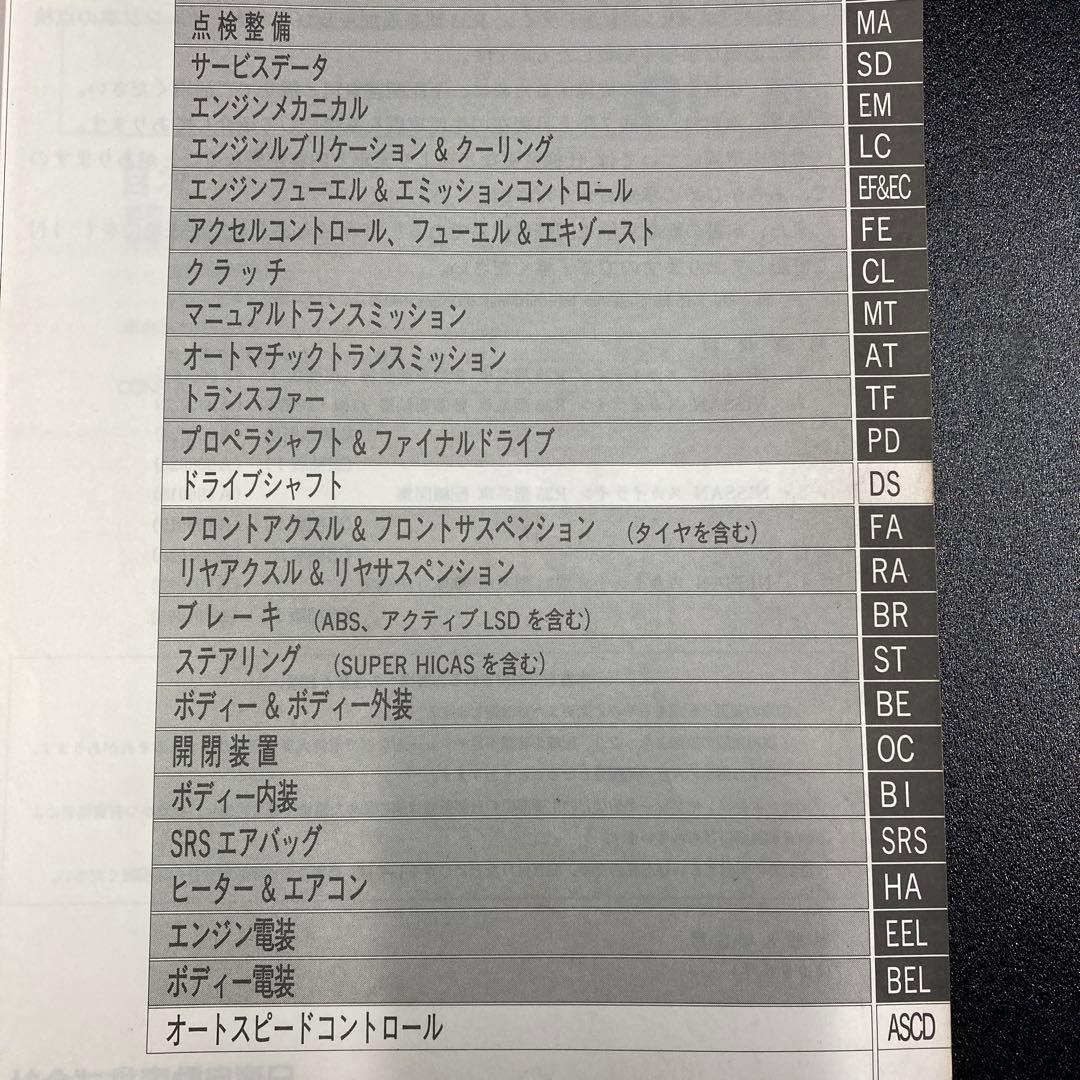 点検整備 MA
サービスデータ SD
エンジンメカニカル EM
エンジンルブリケーション & クーリング LC
エンジンフューエル & エミッションコントロール EF&EC
アクセルコントロール、フューエル & エキゾースト FE
クラッチ CL
マニュアルトランスミッション MT
オートマチックトランスミッション AT
トランスファー TF
プロペラシャフト & ファイナルドライブ PD
ドライブシャフト DS
フロントアクスル & フロントサスペンション (タイヤを含む) FA
リヤアクスル & リヤサスペンション RA
ブレーキ (ABS、アクティブ LSD を含む) BR
ステアリング (SUPER HICAS を含む) ST
ボディー & ボディー外装 BE
開閉装置 OC
ボディー内装 BI
SRS エアバッグ SRS
ヒーター & エアコン HA
エンジン電装 EEL
ボディー電装 BEL
オートスピードコントロール ASCD